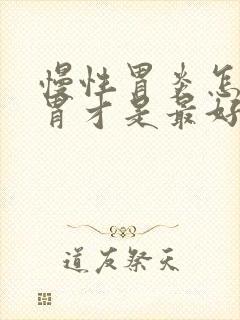 慢性胃炎怎
胃才是最好
道友祭天